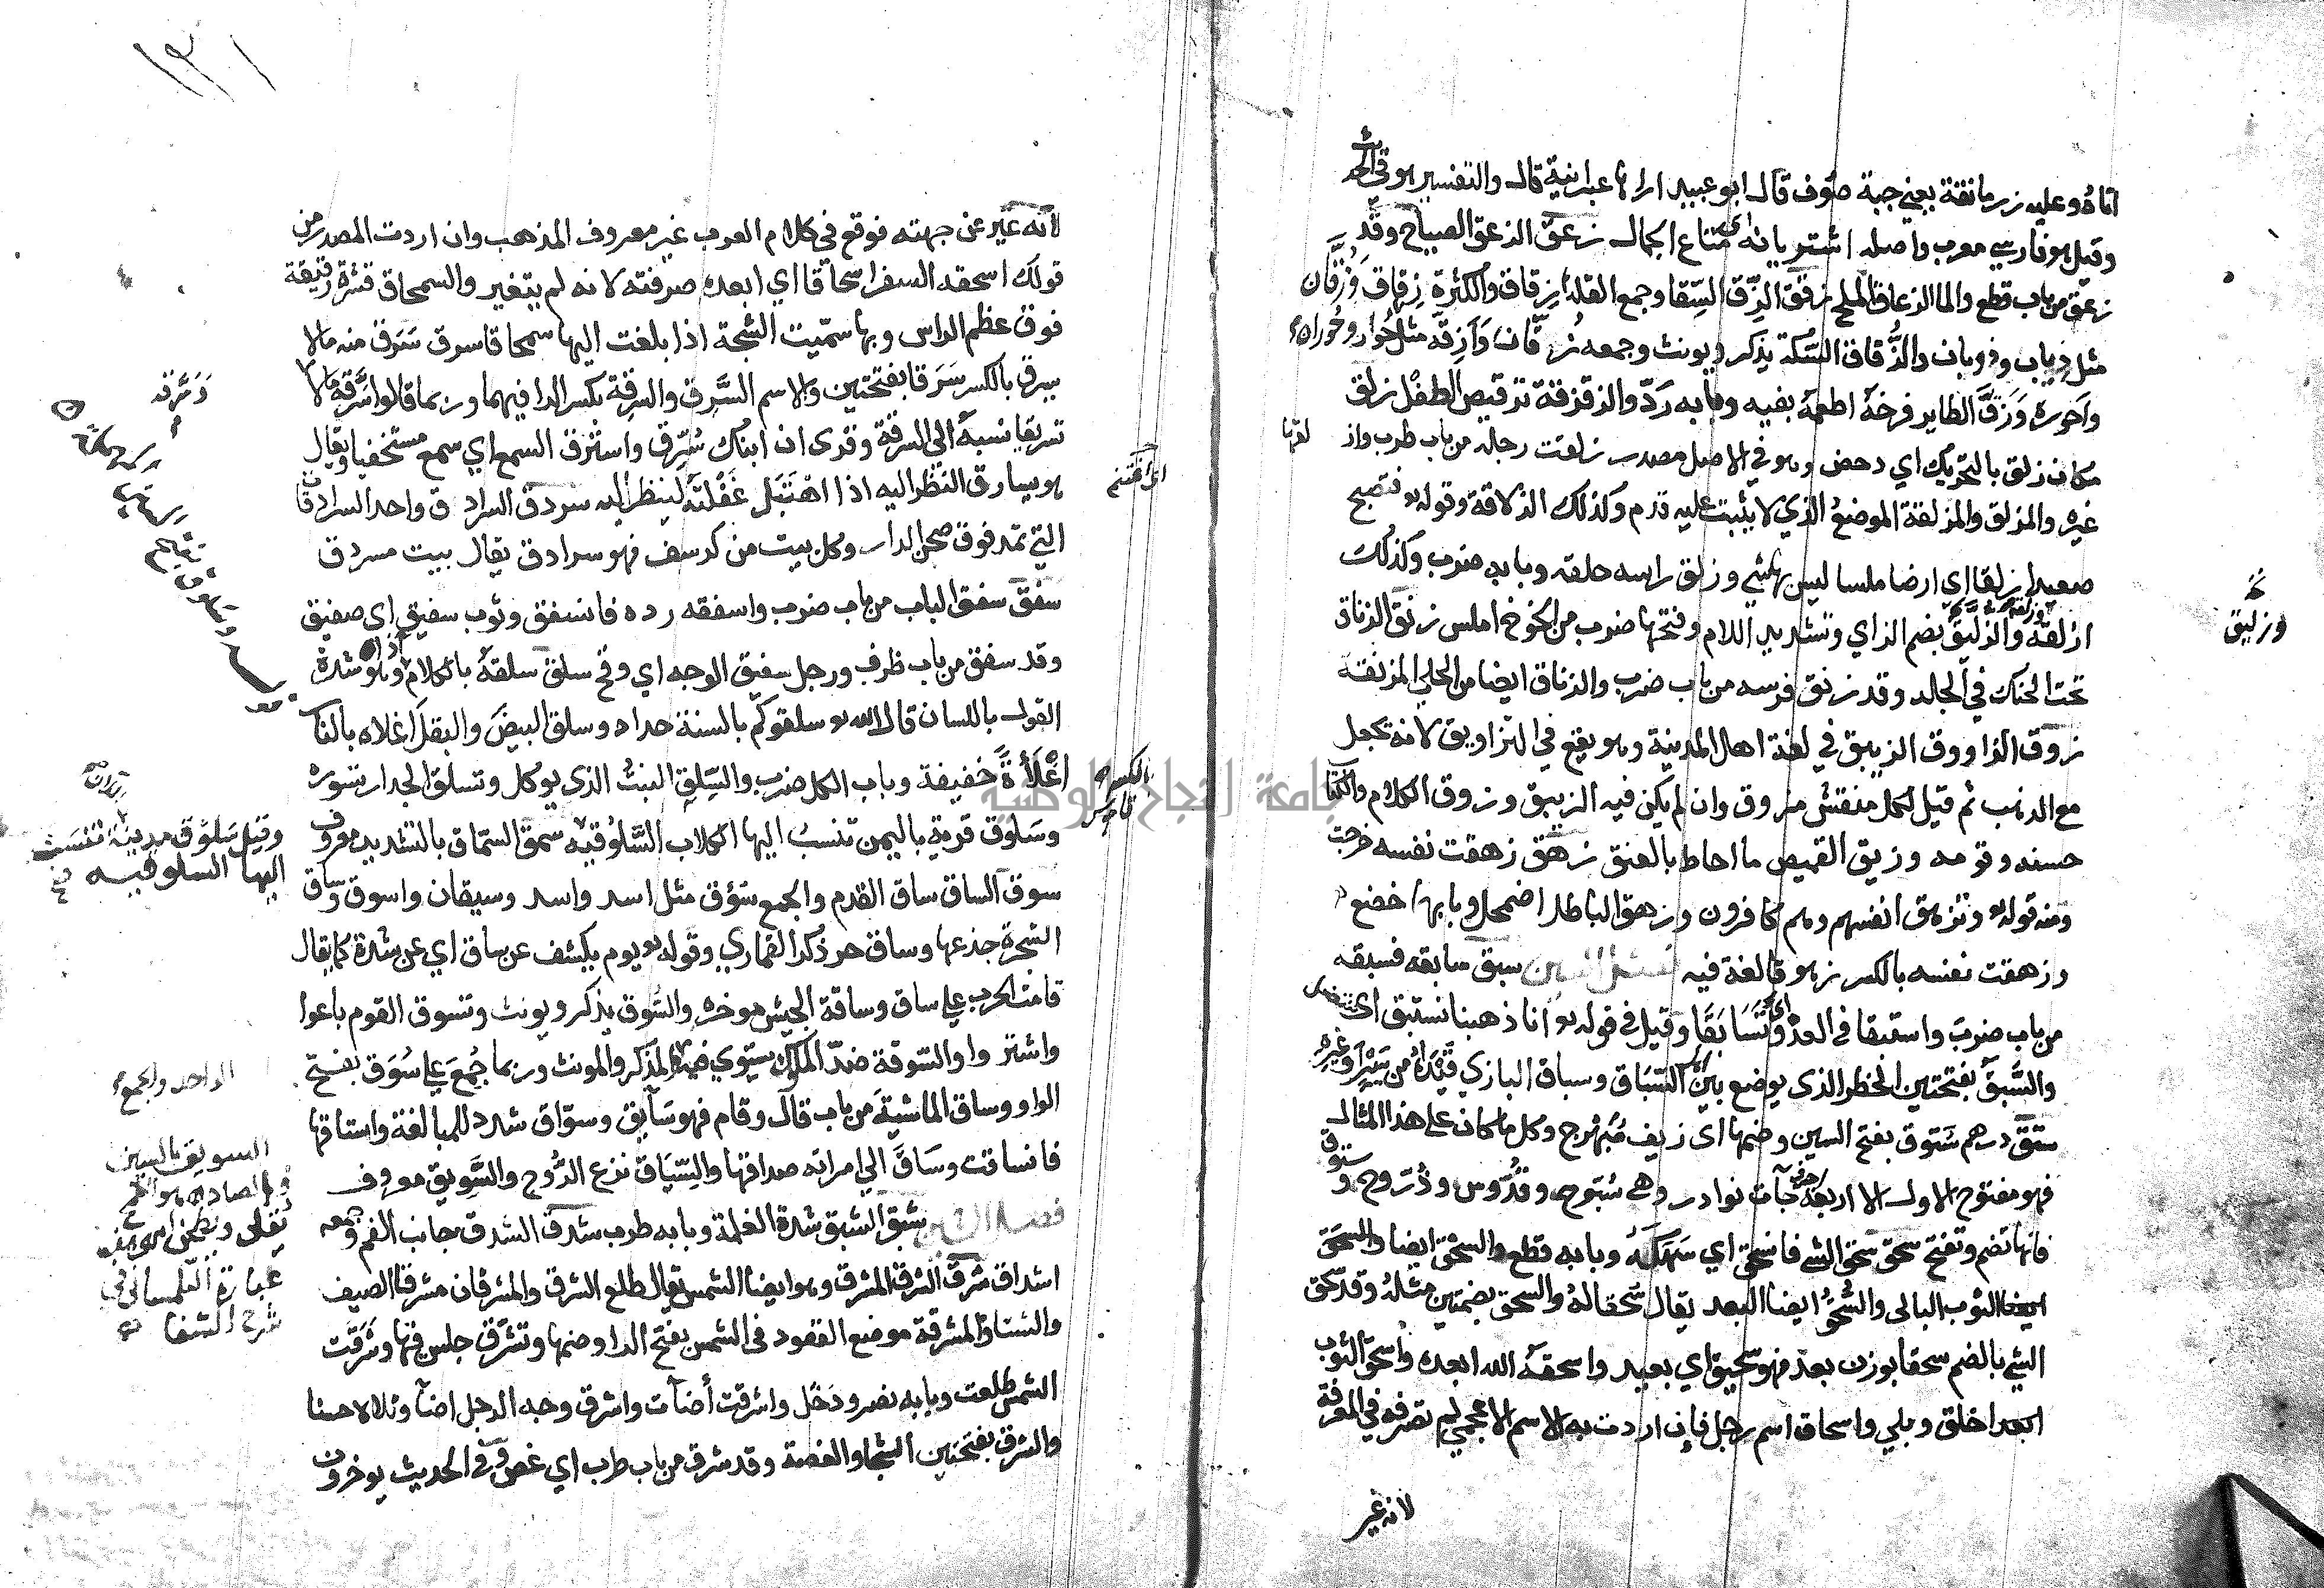 اتاه وعليه زرمانقة يعني جبة صوف قال ابو عبيد اراها عبرانية قال والتفسير هو في الحديث
وقيل هو فارسي معرب واصله اشتربانه اي متاع الجمال زعق الزعق الصياح وقد
زعق من باب قطع والما الزعاق الملح زقق الزق السقا وجمع القلة ازقاق والكثرة زقاق وزقان
مثل ذياب وذوبان والزقاق السكة يذكر ويونث وجمعه زقان وازقة مثل حوار وحوران
واحورة وزق الطاير فرخه اطعمه بفيه وبابه رد والزقزقة ترقيص الطفل زلق
مكان زلق بالتحريك اي دحض وهو في الاصل مصدر زلقت رجله من باب طرب وازلقها
غيره والمزلق والمزلقة الموضع الذي لا يثبت عليه قدم وكذلك الزلاقة وقوله تع فتصبح
صعيدا زلقا اي ارضا ملسا ليس بها شي وزلق راسه حلقه وبابه ضرب وكذلك
ازلقه وزلقه والزليق بضم الزاي وتشديد اللام وفتحها ضرب من الخوخ املس زنق الزناق
تحت الحنك في الجلد وقد زنق فرسه من باب ضرب والزناق ايضا من الحلي المزنقة
زوق الزاووق الزيبق في لغة اهل المدينة وهو يقع في التزاويق لانه يجعل
مع الذهب ثم قيل لكل منقش مزوق وان لم يكن فيه الزيبق وزوق الكلام والكتاب
حسنه وقومه وزيق القميص ما احاط بالعنق زهق زهقت نفسه خرجت
ومنه قوله تع وتزهق انفسهم وهم كافرون وزهق الباطل اضمحل وبابهما خضع
وزهقت نفسه بالكسر زهوقا لغة فيه فصل السين سبق سابقه فسبقه
من باب ضرب واستبقا في العدو اي تسابقا وقيل في قوله تع انا ذهبنا نستبق اي ننتضل
والسبق بفتحتين الخطر الذي يوضع بين السباق وسباق البازي قيداه من سير او غيره
ستق درهم ستوق بفتح السين وضمها اي زيف مبهرج وكل ما كان على هذا المثال
فهو مفتوح الاول الا اربعة احرف جآت نوادر وهي سبوح وقدوس وذروح وستوق
فانها تضم وتفتح سحق سحق الشي فانسحق اي سهكه وبابه قطع والسحق ايضا والسحق
ايضا الثوب البالي والسحق ايضا البعد يقال سحقا له والسحق بضمتين مثله وقد سحق
الشي بالضم سحقا بوزن بعد فهو سحيق اي بعيد واسحقه الله ابعده واسحق الثوب
ايضا اخلق وبلي واسحاق اسم رجل فان اردت به الاسم الاعجمي لم تصرفه في المعرفة
لانه غير
وزليق
١٣١
لانه غير عن جهته فوقع في كلام العرب غير معروف المذهب وان اردت المصدر من
قولك اسحقه السفر اسحاقا اي ابعده صرفته لانه لم يتغير والسمحاق قشرة رقيقة
فوق عظم الراس وبها سميت الشجة اذا بلغت اليها سمحاقا سرق سرق منه مالا
يسرق بالكسر سرقا بفتحتين والاسم السرق والسرقة بكسر الرا فيهما وربما قالوا سرقه مالا
تسريقا نسبه الى السرقة وقرى ان ابنك سرق واسترق السمع اي سمع مستخفيا ويقال
هو يسارق النظر اليه اذا اهتبل غفلته لينظر اليه سردق السرادق واحد السرادقات
التي تمد فوق صحن الدار وكل بيت من كرسف فهو سرادق يقال بيت مسردق
سفق سفق الباب من باب ضرب واسفقه رده فانسفق وثوب سفيق اي صفيق
وقد سفق من باب ظرف ورجل سفيق الوجه اي وقح سلق سلقه بالكلام اذاه وهو شدة
القول باللسان قال الله تع سلقوكم بالسنة حداد وسلق البيض والبقل اغلاه بالنار
اغلاءة خفيفة وباب الكل ضرب والسلق النبت الذي يوكل وتسلق الجدار تسوره
وسلوق قرية باليمن تنسب اليها الكلاب السلوقية سمق السماق بالتشديد معروف
سوق الساق ساق القدم والجمع سوق مثل اسد واسد وسيقان واسوق وساق
الشجرة جذعها وساق حر ذكر القماري وقوله تع يوم يكشف عن ساق اي عن شدة كما يقال
قامت الحرب على ساق وساقة الجيش موخره والسوق يذكر ويونث وتسوق القوم باعوا
واشتروا والسوقة ضد الملك يستوي فيه المذكر والمونث وربما جمع على سوق بفتح
الواو وساق الماشية من باب قال وقام فهو سايق وسواق شدد للمبالغة واستاقها
فانساقت وساق الى امراته صداقها والسياق نزع الروح والسويق معروف
فصل الشين شبق الشبق شدة الغلمة وبابه طرب شدق الشدق جانب الفم وجمعه
اشداق شرق الشرق المشرق وهو ايضا الشمس يقال طلع الشرق والمشرقان مشرقا الصيف
والشتا والمشرقة موضع القعود في الشمس بفتح الرا وضمها وتشرق جلس فيها وشرقت
الشمس طلعت وبابه نصر ودخل واشرقت أضآت واشرق وجه الرجل اضآ وتلالا حسنا
والشرق بفتحتين الشجا والغصة وقد شرق من باب طرب اي غص وفي الحديث يوخرون
اي اغتنم
وقيل سلوق مدينة تنسب
اليها السلوقية
الواحد والجمع
السويق بالسين
عبارة التلمساني في
شرح الشفا
جامعة النجاح الوطنية